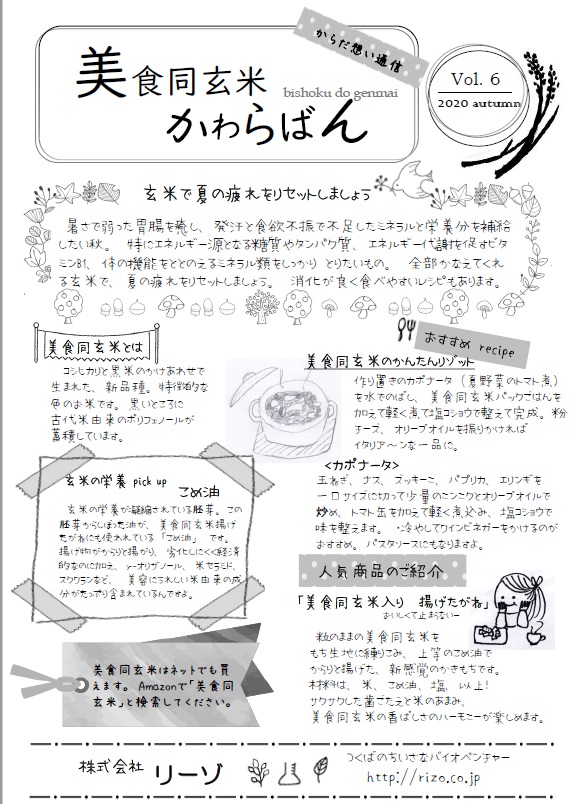 からだ想い通信
美食同玄米
bishoku do genmai
かわらばん
Vol. 6
2020 autumn
玄米で夏の疲れをリセットしましょう
暑さで弱った胃腸を癒し、発汗と食欲不振で不足したミネラルと栄養分を補給
したい秋。 特にエネルギー源となる糖質やタンパク質、エネルギー代謝を促すビタ
ミンB1、体の機能をととのえるミネラル類をしっかり とりたいもの。 全部かなえてくれ
る玄米で、夏の疲れをリセットしましょう。 消化が良く食べやすいレシピもあります。
美食同玄米とは
コシヒカリと黒米のかけあわせで
生まれた、新品種。特徴的な
色のお米です。黒いところに
古代米由来のポリフェノールが
蓄積しています。
玄米の栄養 pick up
こめ油
玄米の栄養が凝縮されている胚芽。この
胚芽からしぼった油が、美食同玄米揚げ
たがねにも使われている「こめ油」 です。
揚げ物がからりと揚がり、劣化しにくく経済
的なのに加え、γ-オリザノール、米セラミド、
スクワランなど、 美容にうれしい米由来の成
分がたっぷり含まれているんですよ。
美食同玄米はネットでも買
えます。Amazonで「美食同
玄米」と検索してください。
おすすめ recipe
美食同玄米のかんたんリゾット
作り置きのカポナータ（夏野菜のトマト煮）
を水でのばし、美食同玄米パックごはんを
加えて軽く煮て塩コショウで整えて完成。粉
チーズ、オリーブオイルを振りかければ
イタリア～ンな一品に。
<カポナータ>
玉ねぎ、ナス、ズッキーニ、パプリカ、エリンギを
一口サイズに切って少量のニンニクとオリーブオイルで
炒め、トマト缶を加えて軽く煮込み、塩コショウで
味を整えます。 ・冷やしてワインビネガーをかけるのが
おすすめ。パスタソースにもなりますよ。
人気商品のご紹介
「美食同玄米入り 揚げたがね」
おいしくて止まらない—
粒のままの美食同玄米を
もち生地に練りこみ、上等のこめ油で
からりと揚げた、新感覚のかきもちです。
材料は、米、こめ油、塩、以上！
サクサクした歯ごたえと米のあまみ、
美食同玄米の香ばしさのハーモニーが楽しめます。
株式会社 リーゾ
つくばのちいさなバイオベンチャー
http://rizo.co.jp